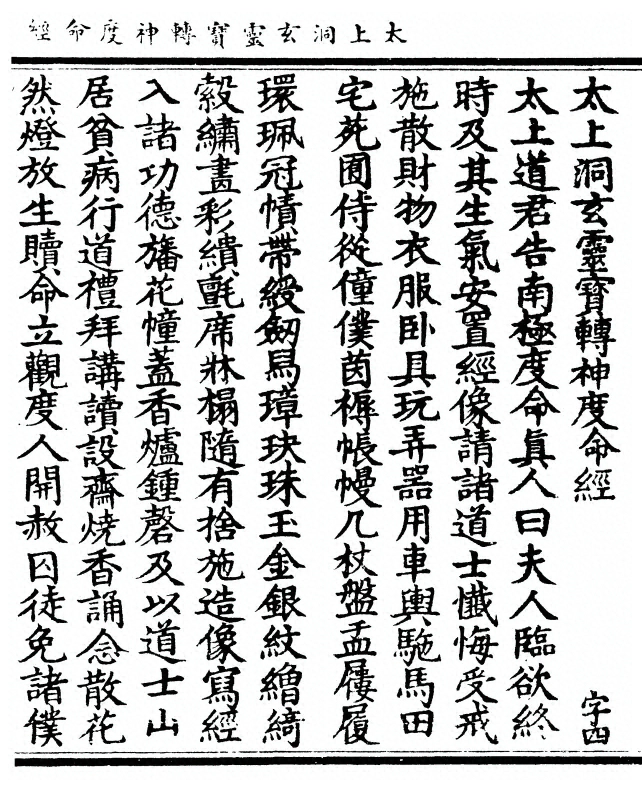 太上洞玄靈寶轉神度命經
太上洞玄靈寶轉神度命經 字四
太上道君告南極度命真人曰夫人臨欲終
時及其生氣安置經像請諸道士懺悔受戒
施散財物衣服卧具玩弄器用車輿馳馬田
宅苑囿侍從僮僕茵褥帳幔几杖盤盂屨履
環珮冠幘帶綬劒舄璋玦珠玉金銀紋繒綺
縠繡畫彩繢氈席牀榻隨有捨施造像寫經
入諸功德旛花幢蓋香爐鍾磬及以道士山
居貧病行道禮拜講讀設齋燒香誦念散花
然燈放生贖命立觀度人開赦囚徒免諸僕